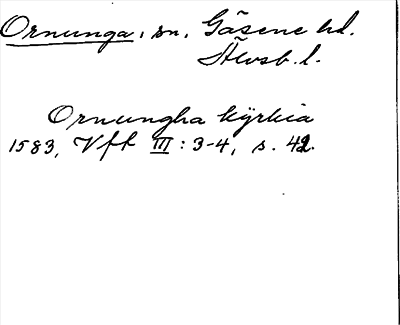 Ornunga, sn, Gäsene hd.
Älvsb. l.
Ornungha kyrkia
1583, Vft III: 3-4, s. 42.